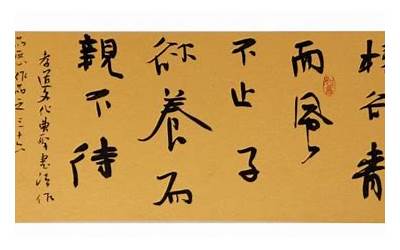 樹欲靜
而風
不止子
欲養而
親不待
孝道文化書法作
作品之三十六